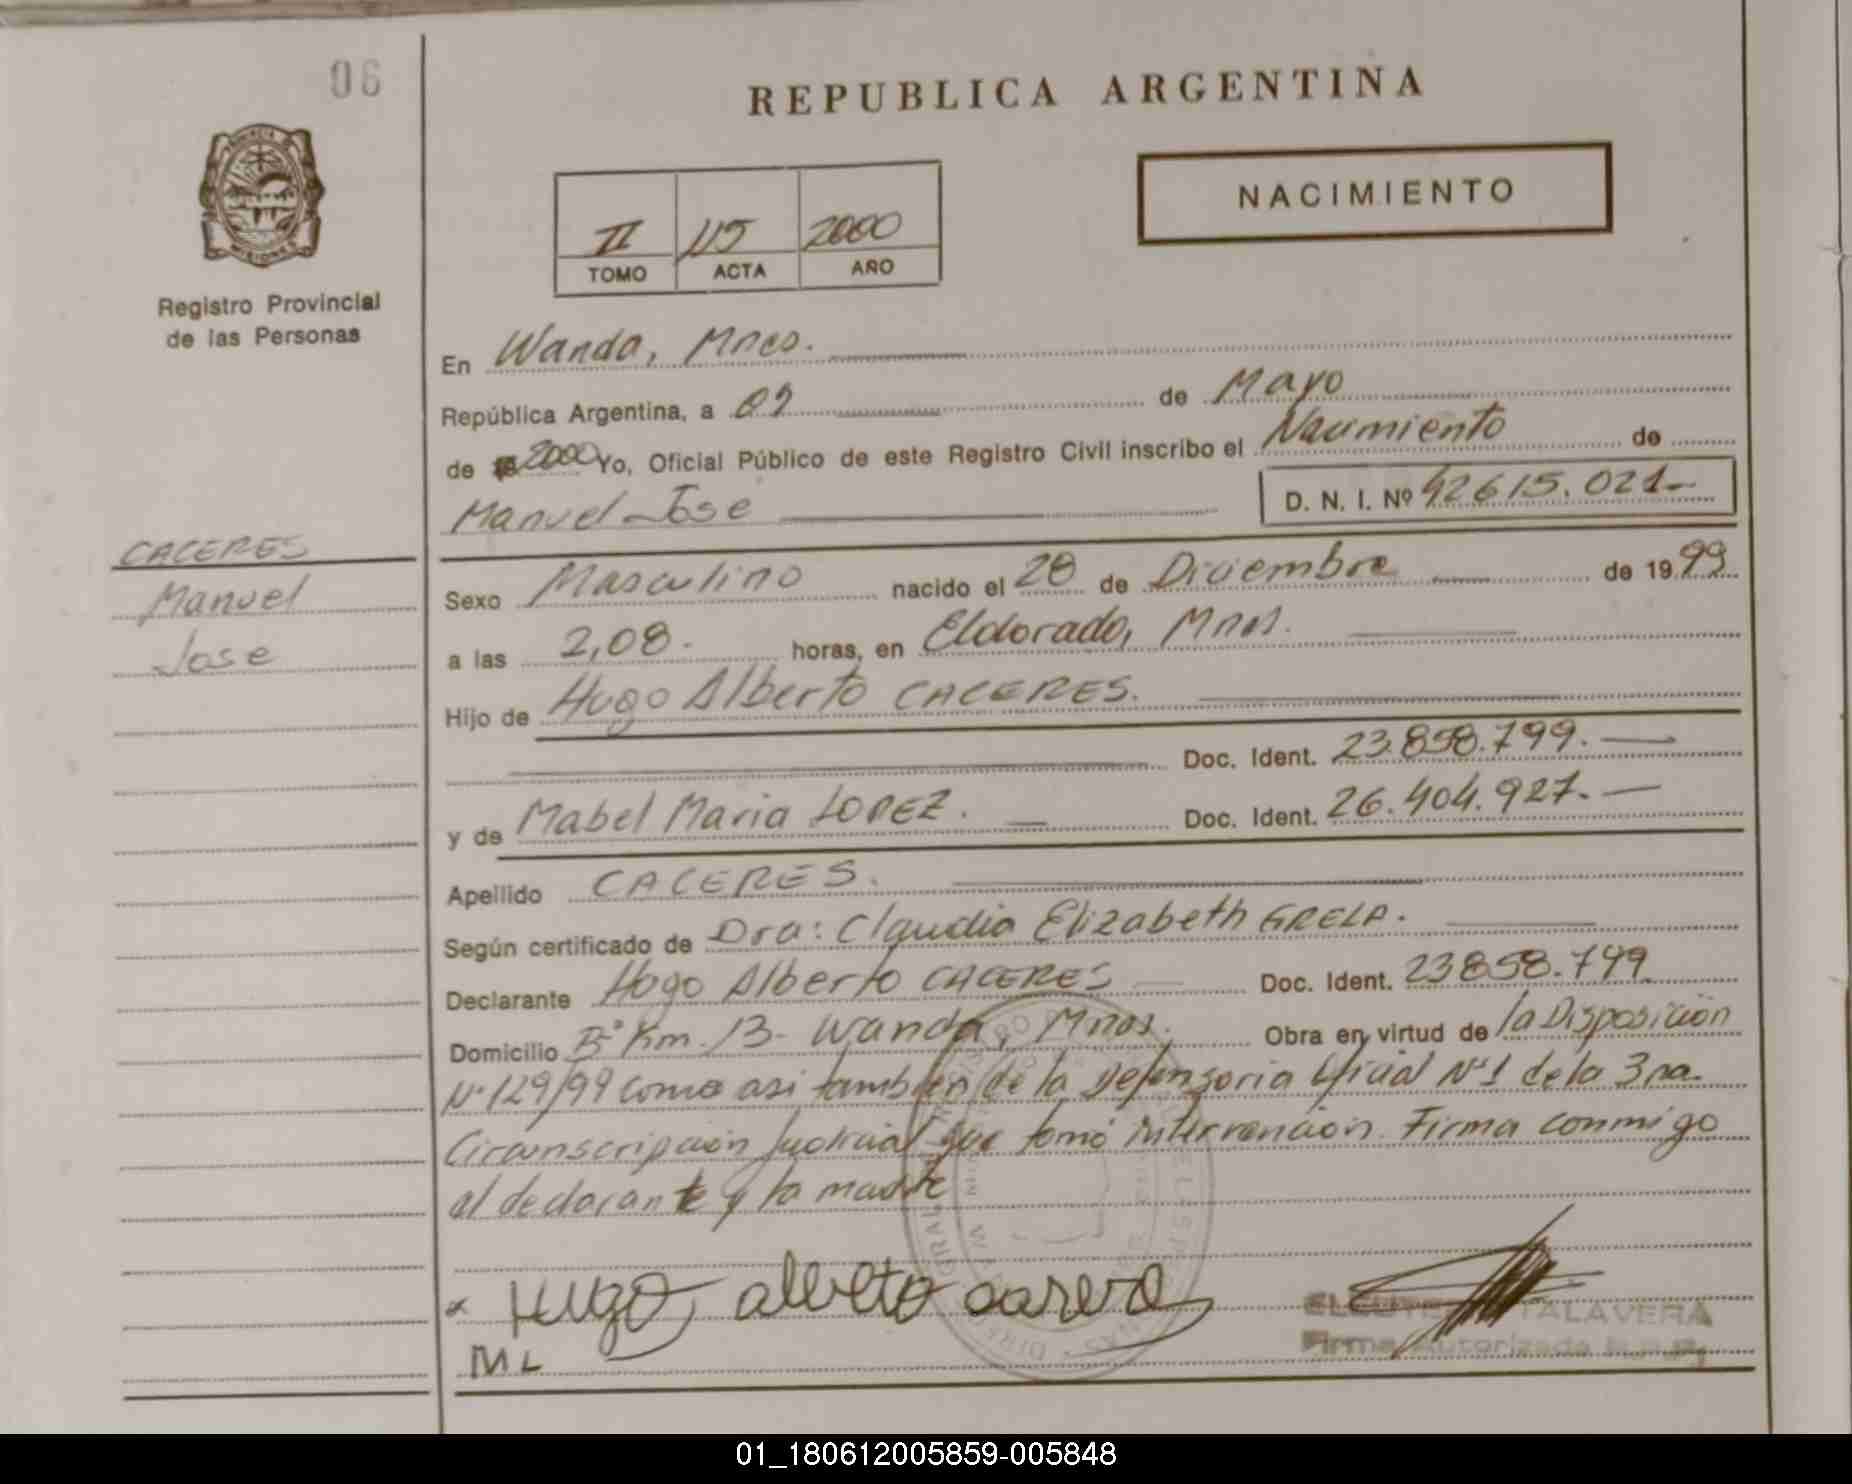 06
REPUBLICA ARGENTINA
NACIMIENTO
II 115 2000
TOMO ACTA AÑO
PROVINCIA DE
MISIONES
Registro Provincial
de las Personas
En Wanda, Mnes.
República Argentina, a 02 de Mayo
de 2000 Yo, Oficial Público de este Registro Civil inscribo el Nacimiento de
Manuel Jose D. N. I. Nº 42615.021-
CACERES
Manuel
Jose
Sexo Masculino nacido el 28 de Diciembre de 1999
a las 2,08. horas, en Eldorado, Mnes.
Hijo de Hugo Alberto CACERES.
Doc. Ident. 23.858.799.
y de Mabel Maria LOPEZ. Doc. Ident. 26.404.927.
Apellido CACERES.
Según certificado de Dra: Claudia Elizabeth GRELA.
Declarante Hugo Alberto CACERES Doc. Ident. 23858.799
Domicilio Bº Km. 13- Wanda, Mnes. Obra en virtud de la Disposición
Nº 129/99 como asi tambien de la Defensoria Oficial Nº1 de la 3ra.
Circunscripción Judicial que tomó intervención. Firma conmigo
el declarante y la madre
x Hugo alberto caserе
ML
TALAVERA
Firma Autorizada
01_180612005859-005848